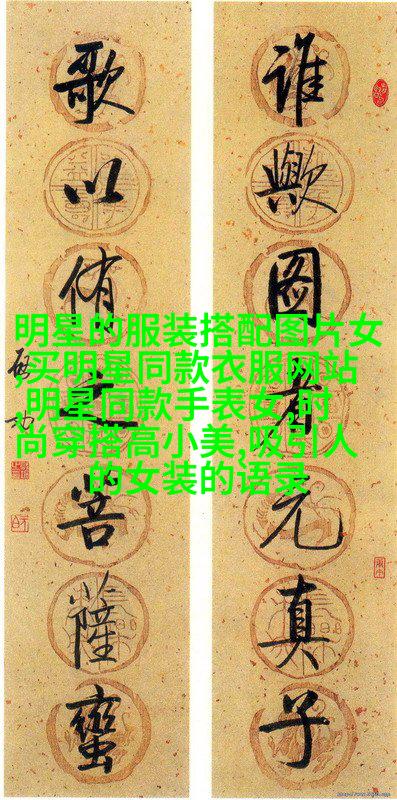 谁歟图者元真子
歌以侑之菩薩蠻
启功
明星的服装搭配图片女
,买明星同款衣服网站
,明星同款手表女,时
尚穿搭高小美,吸引人
的女装的语录